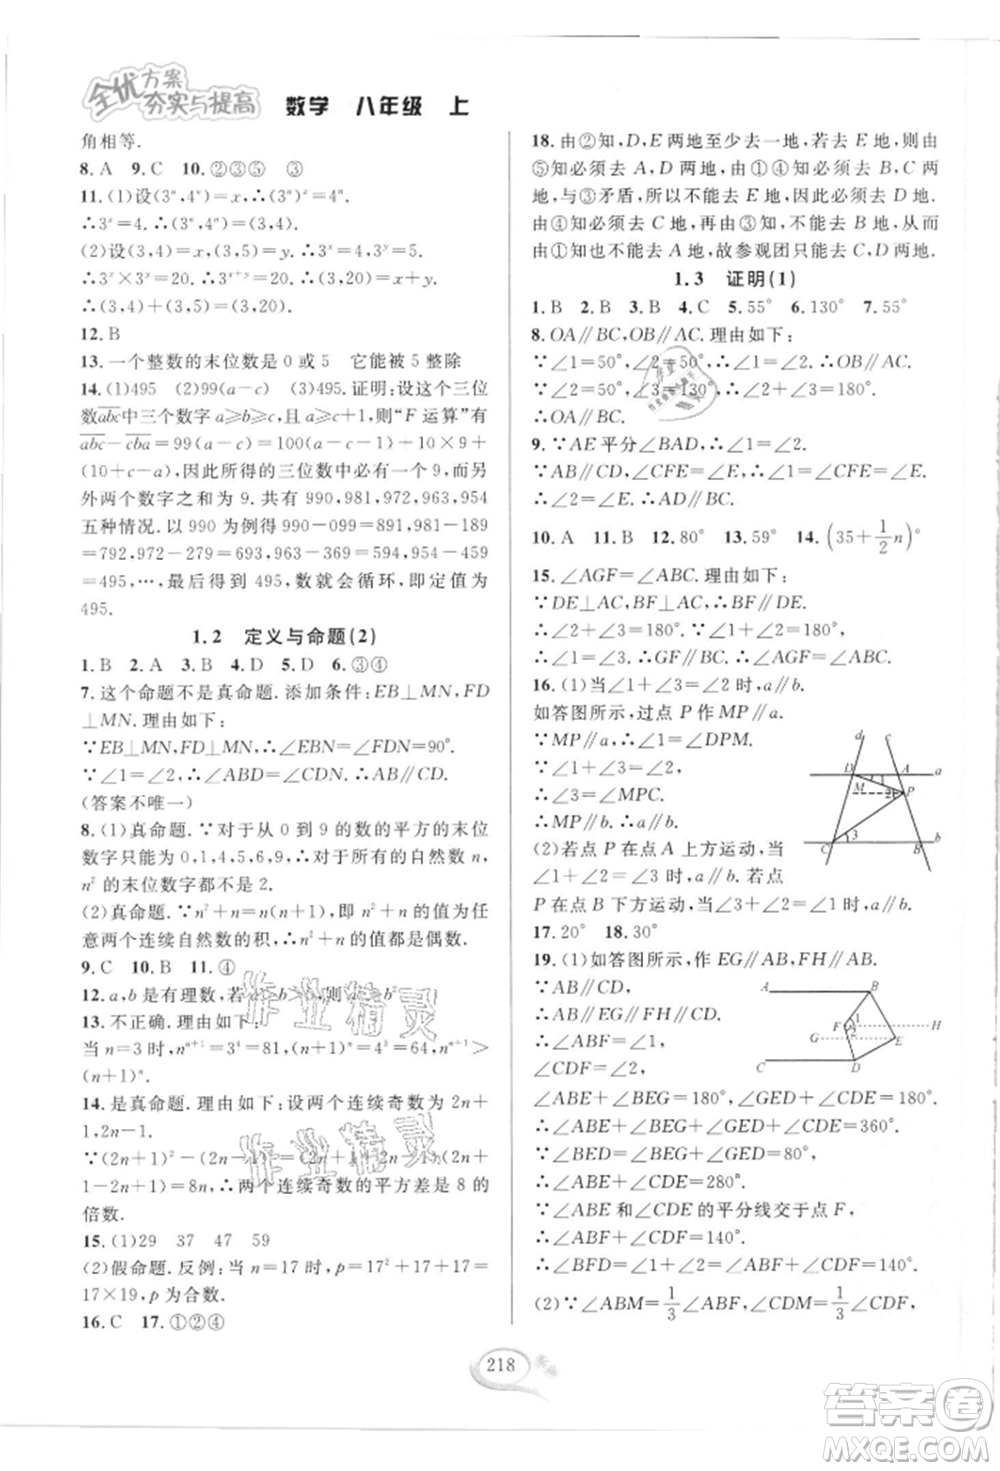 全优方案
夯实与提高 数学 八年级 上
角相等.
8. A 9. C 10. ②③⑤ ③
11. (1)设(3ⁿ,4ⁿ)=x,∴(3ⁿ)ˣ=4ⁿ.
∴3ˣ=4.∴(3ⁿ,4ⁿ)=(3,4).
(2)设(3,4)=x,(3,5)=y.∴3ˣ=4,3ʸ=5.
∴3ˣ×3ʸ=20.∴3ˣ⁺ʸ=20.∴(3,20)=x+y.
∴(3,4)+(3,5)=(3,20).
12. B
13. 一个整数的末位数是 0 或 5 它能被 5 整除
14. (1)495 (2)99(a-c) (3)495.证明:设这个三位
数abc中三个数字 a≥b≥c,且 a≥c+1,则“F 运算”有
abc-cba=99(a-c)=100(a-c-1)+10×9+
(10+c-a),因此所得的三位数中必有一个 9.而另
外两个数字之和为 9.共有 990,981,972,963,954
五种情况.以 990 为例得 990-099=891,981-189
=792,972-279=693,963-369=594,954-459=
495,…,最后得到 495,数就会循环,即定值为
495.
1.2 定义与命题(2)
1. B 2. A 3. B 4. D 5. D 6. ③④
7. 这个命题不是真命题.添加条件:EB⊥MN,FD
⊥MN.理由如下:
∵EB⊥MN,FD⊥MN,∴∠EBN=∠FDN=90°.
∵∠1=∠2,∴∠ABD=∠CDN.∴AB∥CD.
(答案不唯一)
8. (1)真命题.∵对于从 0 到 9 的数的平方的末位
数字只能为 0,1,4,5,6,9,∴对于所有的自然数 n,
n²的末位数字都不是 2.
(2)真命题.∵n²+n=n(n+1),即 n²+n 的值为任
意两个连续自然数的积,∴n²+n 的值都是偶数.
9. C 10. B 11. ④
12. a,b 是有理数,若 a>b>
13. 不正确.理由如下:
当 n=3 时,nⁿ⁺¹=3⁴=81,(n+1)ⁿ=4³=64,nⁿ⁺¹>
(n+1)ⁿ.
14. 是真命题.理由如下:设两个连续奇数为 2n+
1,2n-1.
∵(2n+1)²-(2n-1)²=(2n+1+2n-1)(2n+
1-2n+1)=8n.∴两个连续奇数的平方差是 8 的
倍数.
15. (1)29 37 47 59
(2)假命题.反例:当 n=17 时,p=17²+17+17=
17×19,p 为合数.
16. C 17. ①②④
18. 由②知,D,E 两地至少去一地,若去 E 地,则由
⑤知必须去 A,D 两地,由①④知必须去 B,C 两地,
与③矛盾,所以不能去 E 地,因此必须去 D 地.由
④知必须去 C 地.再由③知,不能去 B 地,从而
由①知也不能去 A 地,故参观团只能去 C,D 两地.
1.3 证明(1)
1. B 2. B 3. B 4. C 5. 55° 6. 130° 7. 55°
8. OA∥BC,OB∥AC.理由如下:
∵∠1=50°,∠2=50°,∴∠1=∠2.∴OB∥AC.
∵∠2=50°,∠3=130°,∴∠2+∠3=180°.
∴OA∥BC.
9. ∵AE 平分∠BAD,∴∠1=∠2.
∵AB∥CD,∠CFE=∠E,∴∠1=∠CFE=∠E.
∴∠2=∠E.∴AD∥BC.
10. A 11. B 12. 80° 13. 59° 14. (35+1/2n)°
15. ∠AGF=∠ABC.理由如下:
∵DE⊥AC,BF⊥AC,∴BF∥DE.
∴∠2+∠3=180°.∵∠1+∠2=180°,
∴∠1=∠3.∴GF∥BC.∴∠AGF=∠ABC.
16. (1)当∠2=∠1+∠3 时,a∥b.
如答图所示,过点 P 作 MP∥a.
∵MP∥a,∴∠1=∠DPM.
∵∠2=∠1+∠3,
∴∠3=∠MPC.
∴MP∥b.∴a∥b.
(2)若点 P 在点 A 上方运动,当
∠2+∠1=∠3 时,a∥b.若点
P 在点 B 下方运动,当∠2+∠3=∠1 时,a∥b.
d c D 1 A a M 2 P 3 C B b
17. 20° 18. 30°
19. (1)如答图所示,作 EG∥AB,FH∥AB.
∵AB∥CD,
∴AB∥EG∥FH∥CD.
∴∠ABF=∠1,
∠CDF=∠2,
A B F 1 2 H G E C D
∠ABE+∠BEG=180°,∠GED+∠CDE=180°.
∴∠ABE+∠BEG+∠GED+∠CDE=360°.
∵∠BED=∠BEG+∠GED=80°,
∴∠ABE+∠CDE=280°.
∵∠ABE 和∠CDE 的平分线交于点 F,
∴∠ABF+∠CDF=140°.
∴∠BFD=∠1+∠2=∠ABF+∠CDF=140°.
(2)∵∠ABM=1/3∠ABF,∠CDM=1/3∠CDF,
218
作业精灵
作业精灵
答案卷
MXQE.COM